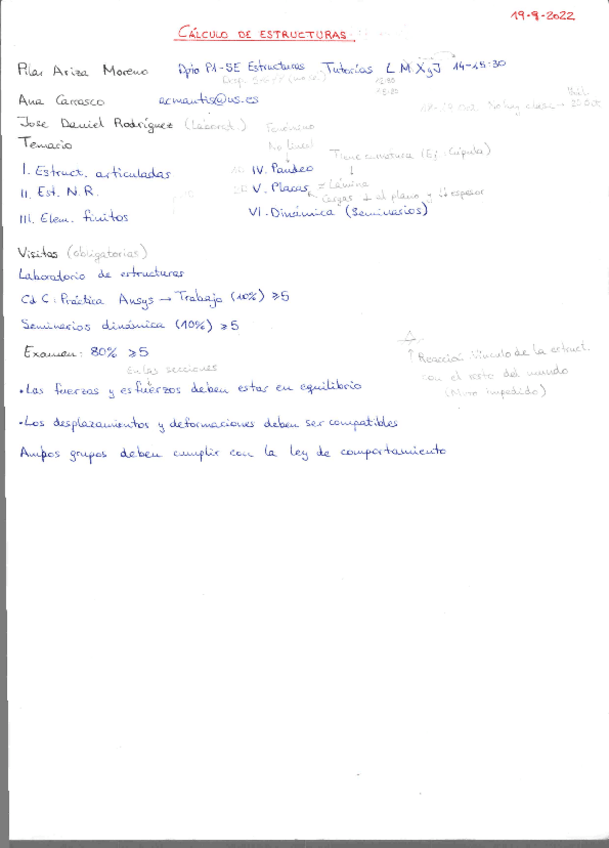 19-9-2022
CÁLCULO DE ESTRUCTURAS
Pilar Ariza Moreno Dpto P1-SE Estructuras Tutorías L M X y J 14-15:30
Ana Carrasco acmantis@us.es
No hay clase →
Jose Daniel Rodríguez (Laborat.) Fenómeno
Temario No lineal Tiene curvatura (Ej: Cúpula)
I. Estruct. articuladas IV. Pandeo
II. Est. N.R. V. Placas = Lámina
Cargas ⊥ al plano y espesor
III. Elem. finitos VI. Dinámica (Seminarios)
Visitas (obligatorias)
Laboratorio de estructuras
Cd C: Práctica Ansys → Trabajo (10%) ≥5
Seminarios dinámica (10%) ≥5
Examen: 80% ≥5
↑ Reacción: Vínculo de la estruct.
con el resto del mundo
(Mov. impedido)
En las secciones
• Las fuerzas y esfuerzos deben estar en equilibrio
• Los desplazamientos y deformaciones deben ser compatibles
Ambos grupos deben cumplir con la ley de comportamiento